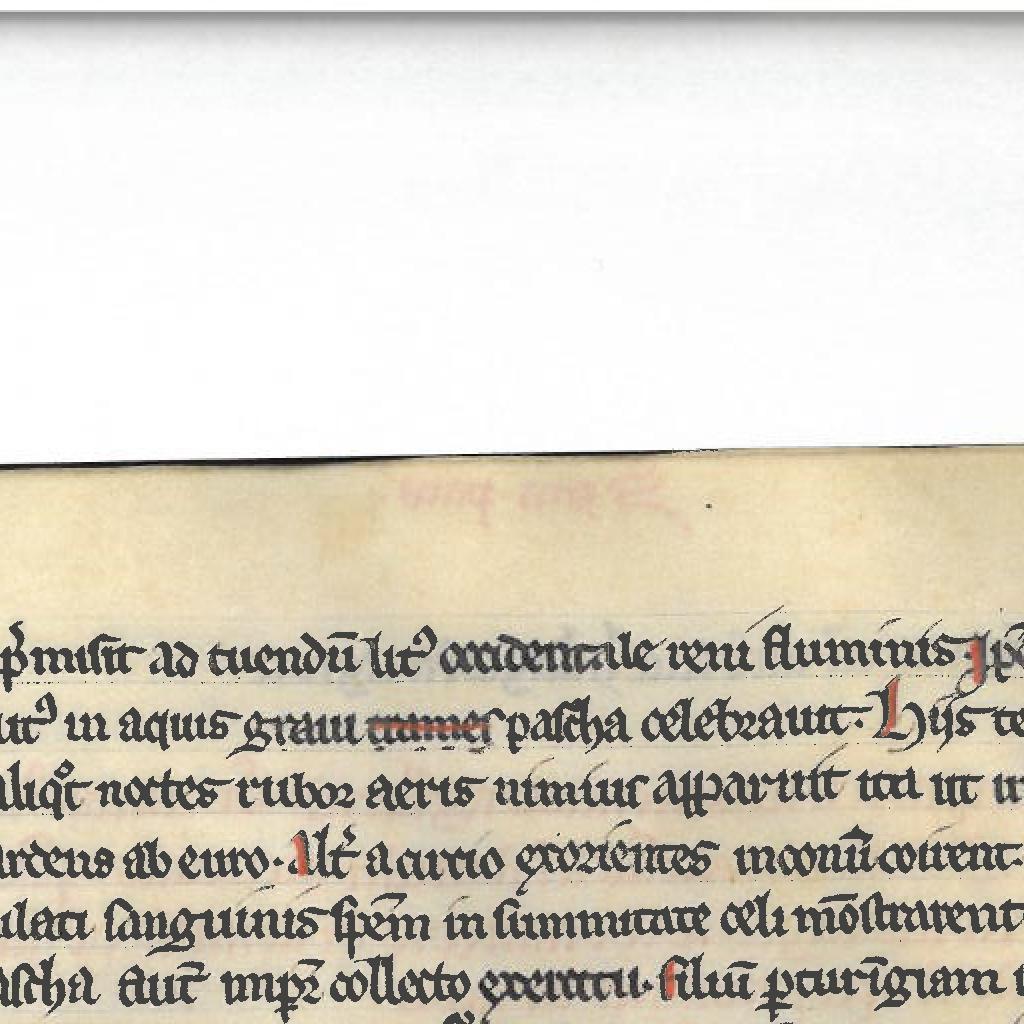 p̄misit ad tuendū litꝰ occidentale reni fluminis. Ip̄e
utꝰ in aquis grani pascha celebrauit. Hijs te
aliqͦt noctes rubor aeris nimius apparuit ita ut
ardens ab euro. Alt̄ a circio exorientes in conū coirent
ulati sanguinis sp̄em in summitate celi mōstrarent
ascha aut̄ imꝑr collecto exercitu. filiū ꝑ turīgiam